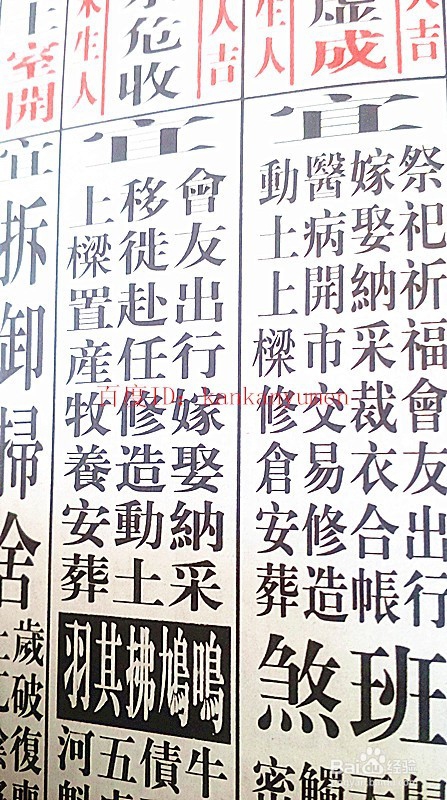 人吉
虛成
生人
宜
祭祀祈福會友出行
嫁娶納采裁衣合帳
醫病開市交易修造
動土上樑修倉安葬
班煞
觸
密
人吉
危收
生人
宜
會友出行嫁娶納采
移徙赴任修造動土
上樑置產牧養安葬
鳴鳩拂其羽
牛
債
五
河魁
室開
宜
拆卸掃舍
歲破復喪
百度ID: kankanzumon
Baidu经验